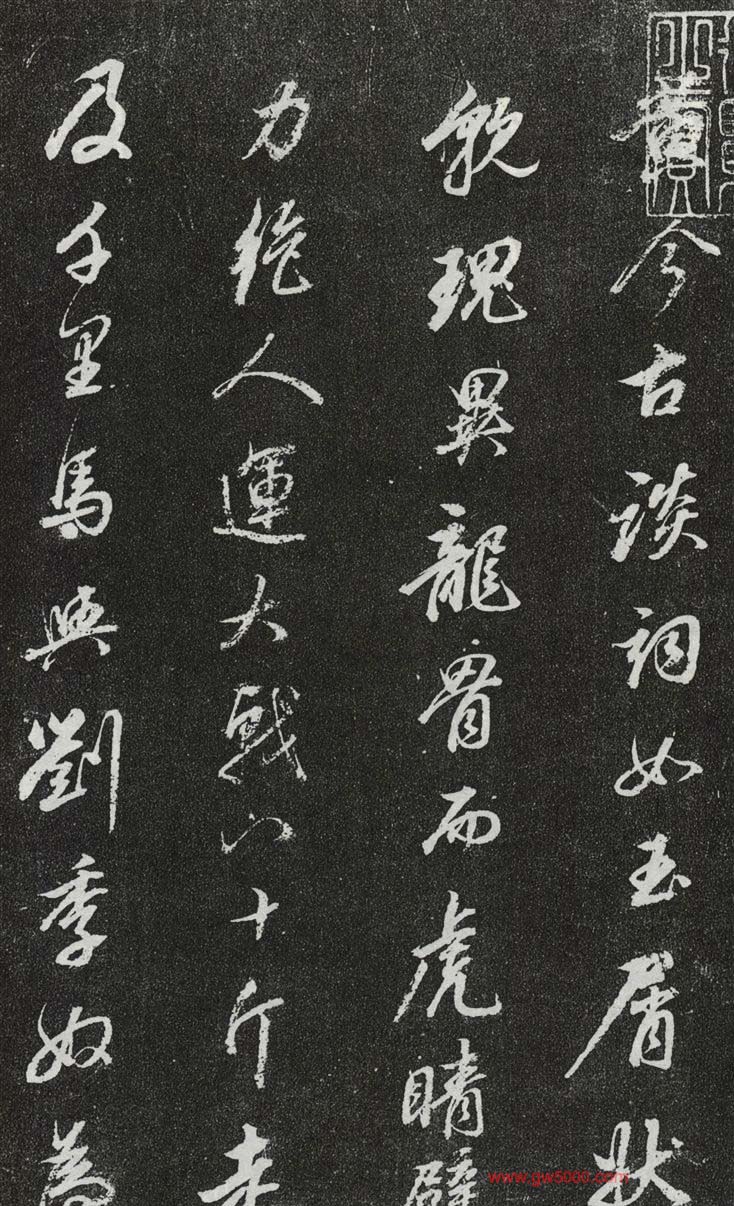 今古談詞如玉屑狀
貌瑰異龍骨而虎睛臂
力絕人運大戟八十斤走
及千里馬與劉季奴為
www.gw5000.com